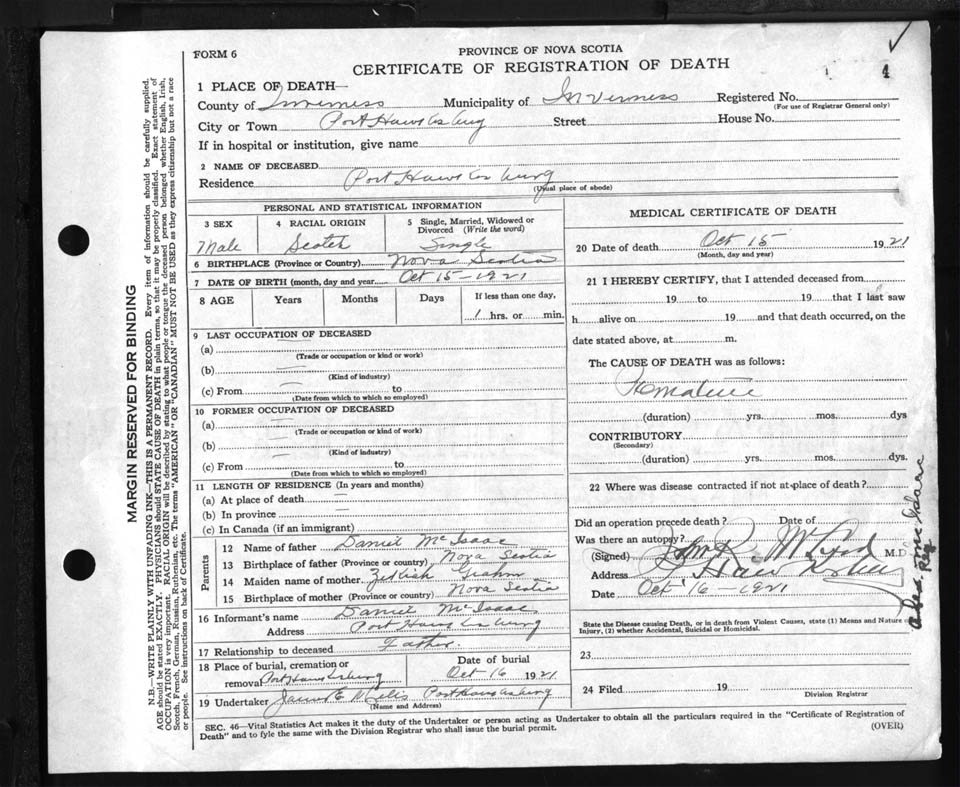 FORM 6
PROVINCE OF NOVA SCOTIA
CERTIFICATE OF REGISTRATION OF DEATH
4
1 PLACE OF DEATH—
County of Inverness Municipality of Inverness Registered No.
(For use of Registrar General only)
City or Town Port Hawkesbury Street House No.
If in hospital or institution, give name
2 NAME OF DECEASED
Residence Port Hawkesbury
(Usual place of abode)
PERSONAL AND STATISTICAL INFORMATION
3 SEX 4 RACIAL ORIGIN 5 Single, Married, Widowed or
Divorced (Write the word)
Male Scotch Single
6 BIRTHPLACE (Province or Country) Nova Scotia
7 DATE OF BIRTH (month, day and year) Oct 15-1921
8 AGE Years Months Days If less than one day,
1 hrs. or min.
9 LAST OCCUPATION OF DECEASED
(a)
(Trade or occupation or kind or work)
(b)
(Kind of industry)
(c) From to
(Date from which to which so employed)
10 FORMER OCCUPATION OF DECEASED
(a)
(Trade or occupation or kind of work)
(b)
(Kind of industry)
(c) From to
(Date from which to which so employed)
11 LENGTH OF RESIDENCE (In years and months)
(a) At place of death
(b) In province
(c) In Canada (if an immigrant)
Parents
12 Name of father Daniel McIsaac
13 Birthplace of father (Province or country) Nova Scotia
14 Maiden name of mother
15 Birthplace of mother (Province or country) Nova Scotia
16 Informant's name Daniel McIsaac
Address Port Hawkesbury
17 Relationship to deceased Father
18 Place of burial, cremation or Date of burial
removal Port Hawkesbury Oct 16 1921
19 Undertaker James E Port Hawkesbury
(Name and Address)
MEDICAL CERTIFICATE OF DEATH
20 Date of death Oct 15 1921
(Month, day and year)
21 I HEREBY CERTIFY, that I attended deceased from
19 to 19 that I last saw
h alive on 19 and that death occurred, on the
date stated above, at m.
The CAUSE OF DEATH was as follows:
Premature
(duration) yrs. mos. dys
CONTRIBUTORY
(Secondary)
(duration) yrs. mos. dys.
22 Where was disease contracted if not at place of death?
Did an operation precede death? Date of
Was there an autopsy?
(Signed) M.D
Address
Date Oct 16-1921
State the Disease causing Death, or in death from Violent Causes, state (1) Means and Nature of
Injury, (2) whether Accidental, Suicidal or Homicidal.
23
24 Filed 19
Division Registrar
SEC. 46—Vital Statistics Act makes it the duty of the Undertaker or person acting as Undertaker to obtain all the particulars required in the "Certificate of Registration of
Death" and to fyle the same with the Division Registrar who shall issue the burial permit.
(OVER)
MARGIN RESERVED FOR BINDING
N.B.—WRITE PLAINLY WITH UNFADING INK—THIS IS A PERMANENT RECORD. Every item of information should be carefully supplied.
AGE should be stated EXACTLY. PHYSICIANS should STATE CAUSE OF DEATH in plain terms, so that it may be properly classified. Exact statement of
OCCUPATION is very important. RACIAL ORIGIN will be described by stating to what people or tongue the deceased person belonged whether English, Irish,
Scotch, French, German, Russian, Ruthenian, etc. The terms "AMERICAN" OR "CANADIAN" MUST NOT BE USED as they express citizenship but not a race
or people. See instructions on back of Certificate.